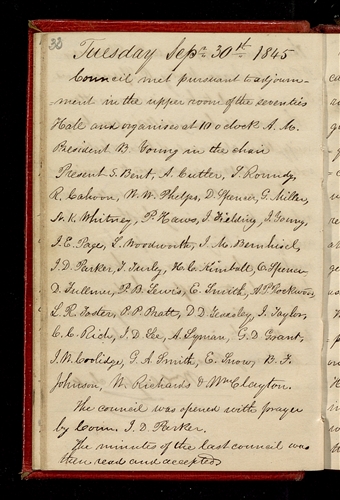 33
Tuesday Sepr. 30th. 1845
Council met pursuant to adjourn-
ment in the upper room of the seventies
Hall and organised at 10 o clock A. M.
President B Young in the chair
Present S. Bent, A. Cutler, S. Roundy,
R. Cahoon, W. W. Phelps, D. Spencer, G. Miller,
N. K. Whitney, P. Haws, J. Fielding, J. Young,
J. E. Page, L. Woodworth, J. M. Bernhisel,
J. D. Parker, J. Farly, H. C. Kimball, O. Spencer
D. Fullmer, P. B. Lewis, E. Smith, A. P. Rockwood,
L. R. Foster, P. P. Pratt, D. D. Yearsley, J. Taylor,
C. C. Rich, J. D. Lee, A. Lyman, G. D. Grant,
J. W. Coolidge, G. A. Smith, E. Snow, B. F.
Johnson, W. Richards & Wm Clayton.
The council was opened with prayer
by Coun. J. D. Parker.
The minutes of the last council was
then read and accepted